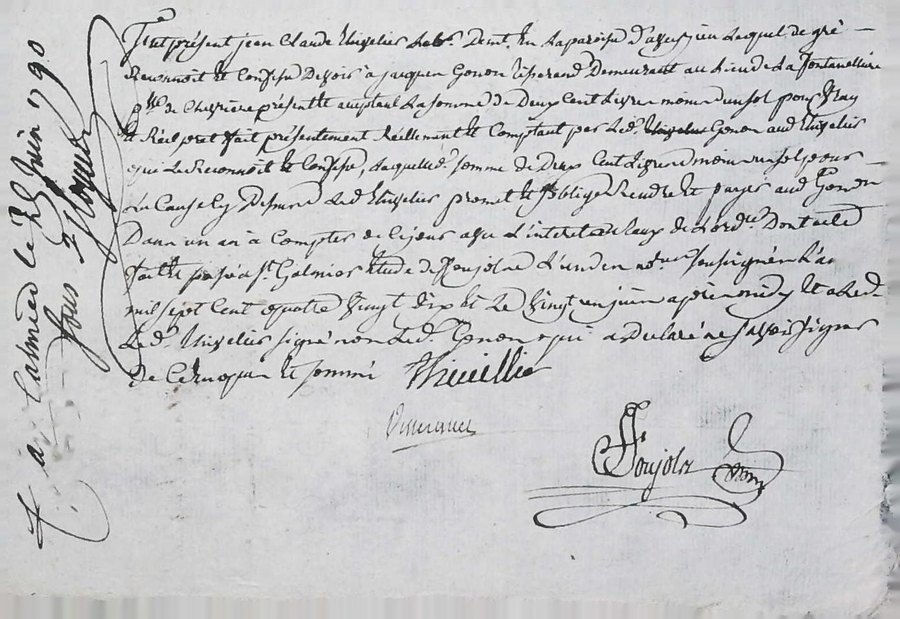 fut présent jean Claude thivelier lab.r demt. en la paroisse d'aveizieu lequel de gré
Reconnoit et Confesse devoir à jacques Gonon tisserand Demeurant au lieu de la fontanelliere
psse de Chevriere présent et acceptant la somme de Deux Cent Livres moins un sol pour
et Réel pret fait présentement Réellement et Comptant par led. Gonon aud thivelier
qui le Reconnoit et Confesse, laquelle d. somme de Deux Cent Livres moins un sol pour
la Cause cy Dessus led thivelier promet et s'oblige Rendre et payer aud Gonon
Dans un an à Compter de ce jour avec L'interet au taux de L'ordce Dont acte
fait et passé à St Galmier étude de L'un des nores soussignés L'an
mil sept Cent quatre vingt dix et le vingt un juin après midy et a led.
led. thivelier signé non led. Gonon qui a déclaré ne savoir signer
de Ce Enquis et sommé thivillier
Ponjolz
à Galmier le juin 1790